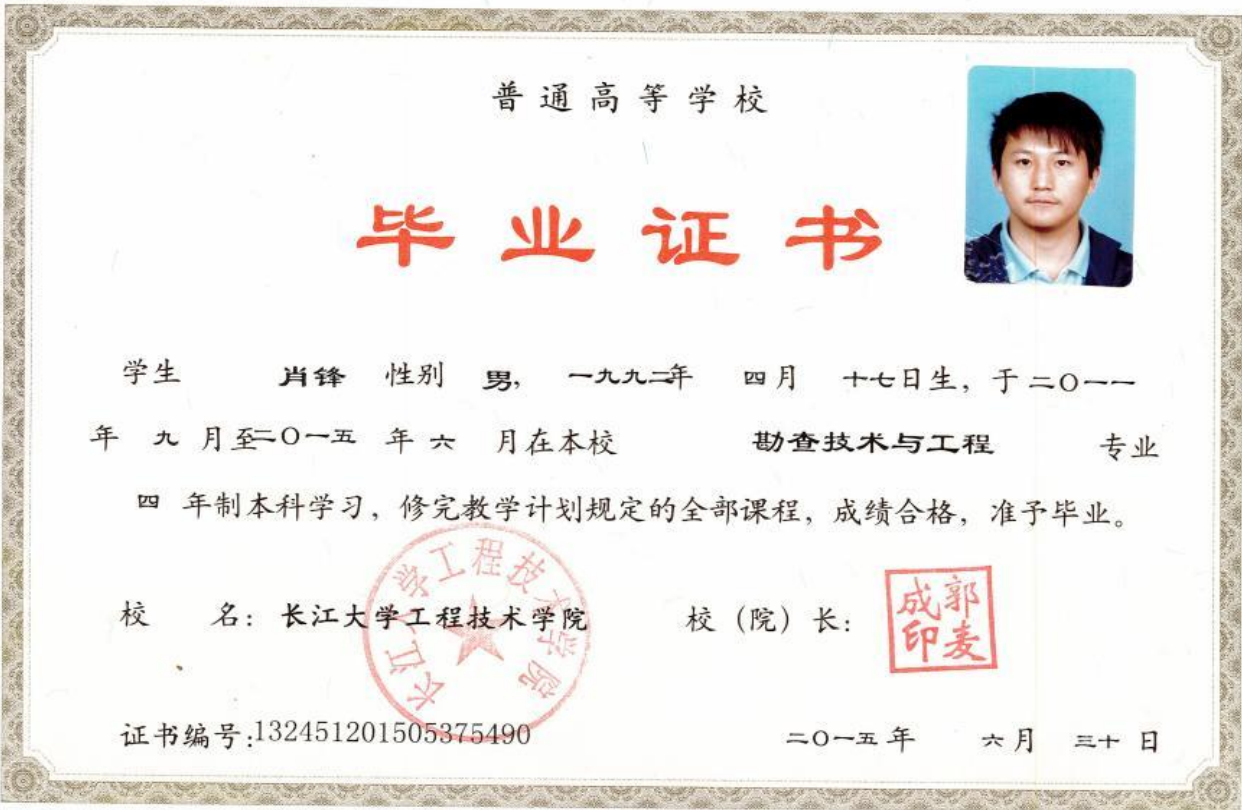 普通高等学校
毕业证书
学生 肖锋 性别 男, 一九九二年 四月 十七日生, 于二〇一一
年 九 月至二〇一五 年 六 月在本校 勘查技术与工程 专业
四 年制本科学习, 修完教学计划规定的全部课程, 成绩合格, 准予毕业。
校 名: 长江大学工程技术学院 校 (院) 长:
长江大学工程技术学院
郭麦成印
证书编号:132451201505375490 二〇一五年 六月 三十日